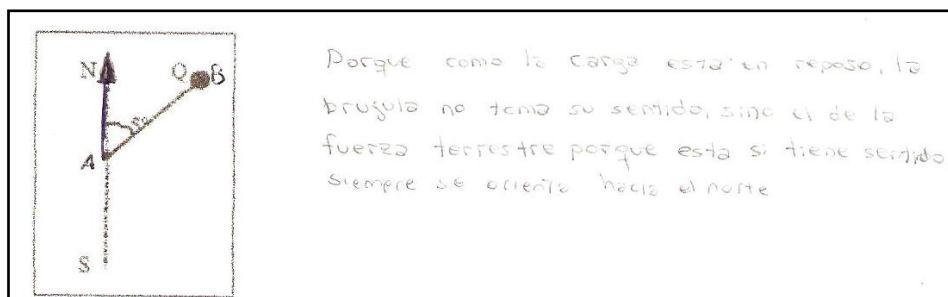 N
Q B
A
S
Porque como la carga esta en reposo, la
brugula no toma su sentido, sino el de la
fuerza terrestre porque esta si tiene sentido
siempre se orienta hacia el norte